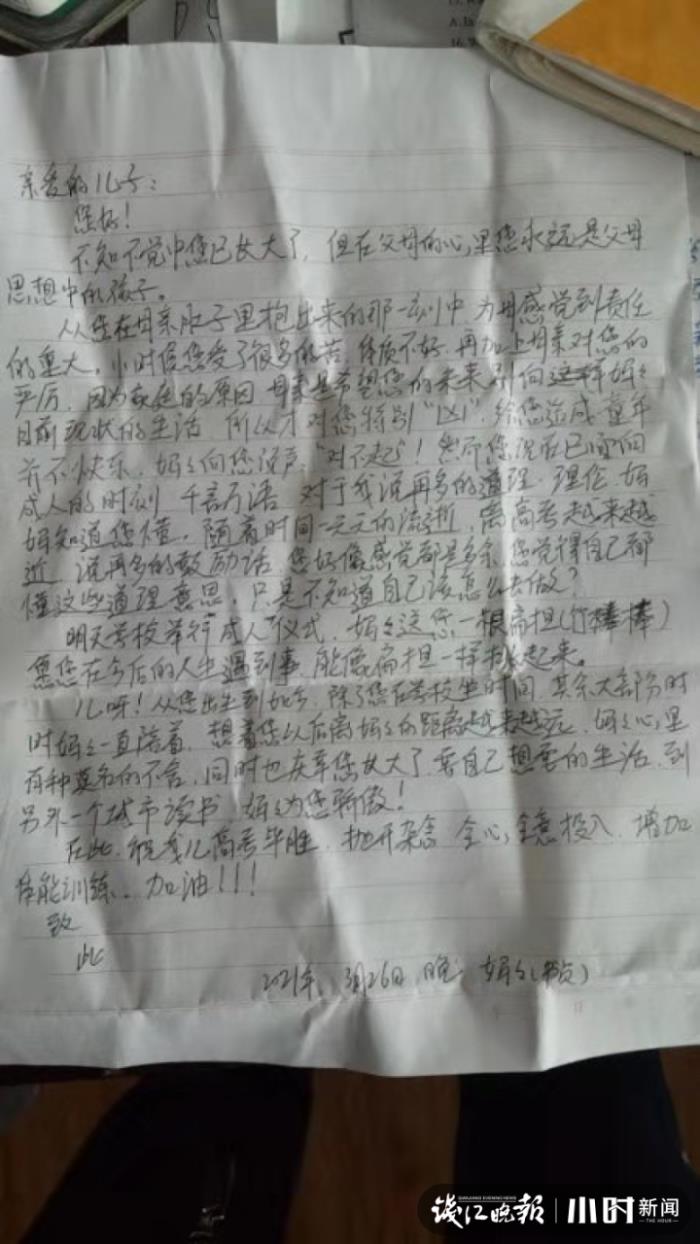 亲爱的儿子：
您好！
不知不觉中您已长大了，但在父母的心里您永远是父母
思想中的孩子。
从您在母亲肚子里抱出来的那一刻中 为母感觉到责任
的重大，小时侯您受了很多的苦，体质不好，再加上母亲对您的
严厉，因为家庭的原因 母亲是希望您的未来别向这样妈妈
目前现状的生活，所以才对您特别“凶”，给您造成童年
并不快乐，妈妈向您说声：“对不起”！然而您现在已
成人的时刻 千言万语，对于我说再多的道理、理伦，妈
妈知道您懂，随着时间一天天的流逝，离高考越来越
近，说再多的鼓励话，您好像感觉都是多余，您觉得自己都
懂这些道理意思，只是不知道自己该怎么去做？
明天学校举行“成人”仪式，妈妈送您一根扁担（竹棒棒）
愿您在今后的人生遇到事，能像扁担一样挑起来。
儿呀！从您出生到如今，除了您在学校生时间，其余大部分时
时妈妈一直陪着，想着您以后离妈妈的距离越来越远，妈妈心里
有种莫名的不舍，同时也庆幸您长大了，要自己想要的生活，到
另外一个城市读书，妈妈为您骄傲！
在此，祝我儿高考毕胜，抛开杂念 全心全意投入，增加
体能训练。加油！！！
致
此
2021年 3月26日 晚 妈妈
钱江晚报
QIANJIANG EVENING NEWS
小时新闻
THE HOUR